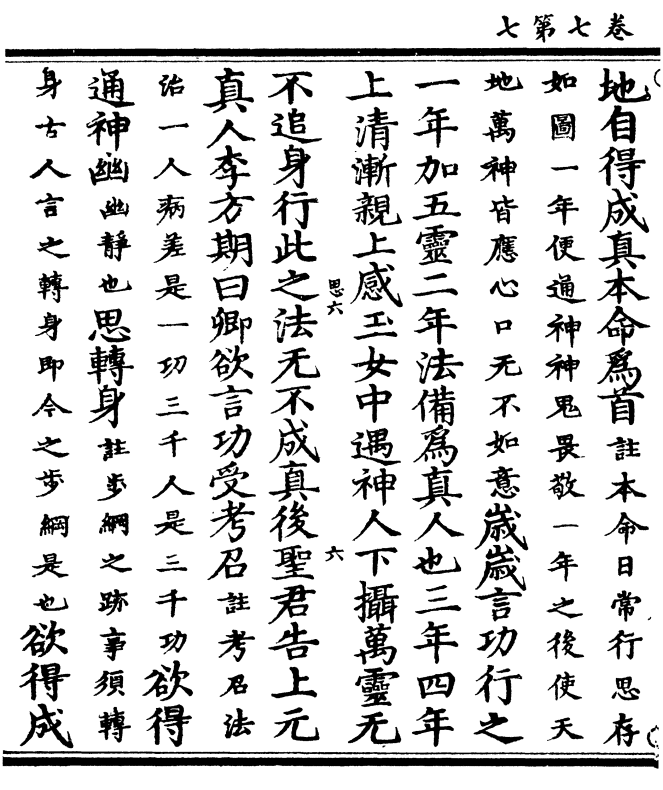 卷七第七
地自得成真本命爲首註本命日常行思存
如圖一年便通神神鬼畏敬一年之後使天
地萬神皆應心口无不如意歲歲言功行之
一年加五靈二年法備爲真人也三年四年
上清漸親上感玉女中遇神人下攝萬靈无
思六
六
不追身行此之法无不成真後聖君告上元
真人李方期曰卿欲言功受考召註考召法
治一人病差是一功三千人是三千功欲得
通神幽幽靜也思轉身註步綱之跡事須轉
身古人言之轉身即今之步綱是也欲得成